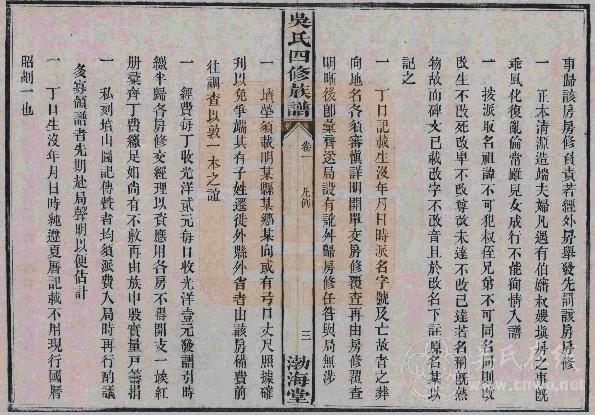 事歸該房房修負責若經外房舉發先罰該房房修
一 正本清源造端夫婦凡遇有伯嬸叔嫂塡房之事既
乖風化復亂倫常雖兒女成行不能徇情入譜
一 按派取名祖諱不可犯叔侄兄弟不可同名同則改
改生不改死改卑不改尊改未達不改已達若名稱既然
物故而碑文已載改字不改音且於改名下註原名某以
記之
一 丁口記載生沒年月日時派名字號及亡故者之葬
向地名各須審愼詳明開單交房修覆查再由房修覆查
明晰後卽彙齊送局設有訛外歸房修任咎與局無涉
吳氏四修族譜
卷一
凡例
三
渤海堂
一 墳塋須載明某縣某鄉某向或有弓口丈尺照據確
刊以免爭端其有子姓遷徙外縣外省者由該房備費前
往調查以敦一本之誼
一 經費每丁收光洋貳元每口收光洋壹元發譜引時
繳半歸各房修交經理以資應用各房不得開支一俟紅
册彙齊丁費繳足如尚有不敷再由族中殷實量戶籌捐
一 私刻墳山圖記傳贊者均須派費入局時再行酌議
多寡領譜者先期赴局聲明以便估計
一 丁口生沒年月日時純遵夏曆記載不用現行國曆
昭劃一也
吳氏在線
www.cnwu.net